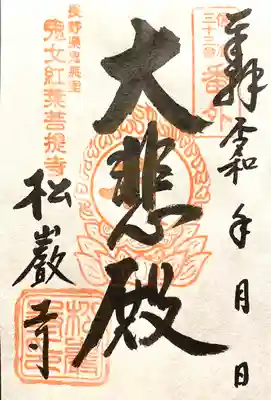 奉拝 令和 年 月 日
信濃
三十三番
番外
大悲殿
長野県鬼無里
鬼女紅葉菩提寺
松巌寺